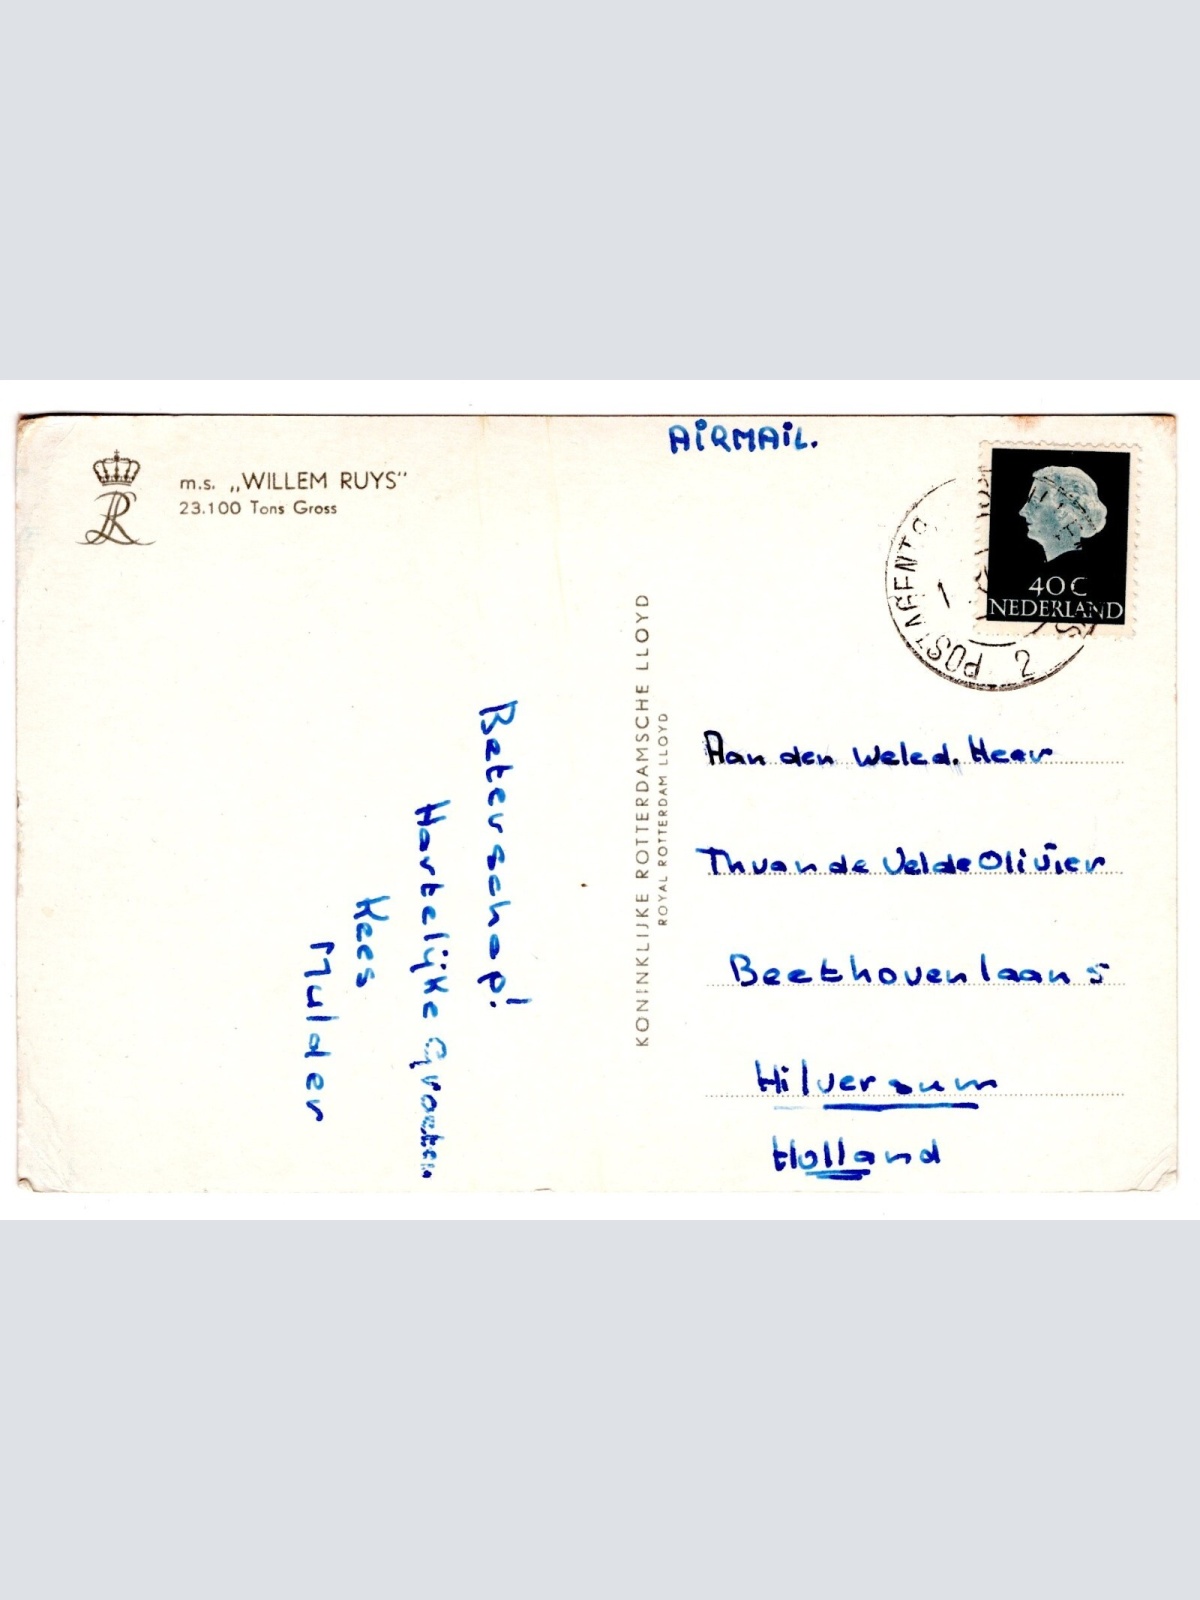 AIRMAIL.
m.s. „WILLEM RUYS“
23.100 Tons Gross
LR
40C
NEDERLAND
POSTAGENTS
1
2
KONINKLIJKE ROTTERDAMSCHE LLOYD
ROYAL ROTTERDAM LLOYD
Beterschap!
Hartelijke Groeten.
Kees
Mulder
Aan den Weled. Heer
Th van de Velde Olivier
Beethovenlaan 5
Hilversum
Holland